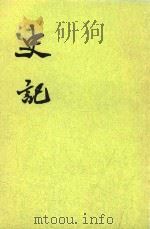 史
記
mtoou.info